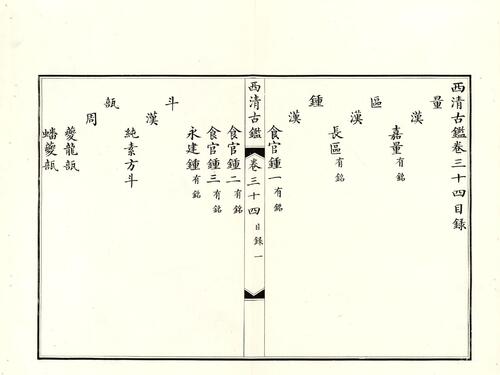 西清古鑑卷三十四目錄
量
漢
嘉量有銘
區
漢
長區有銘
鍾
漢
食官鍾一有銘
西清古鑑 卷三十四 目錄 一
食官鍾二有銘
食官鍾三有銘
永建鍾有銘
斗
漢
純素方斗
瓿
周
夔龍瓿
蟠夔瓿